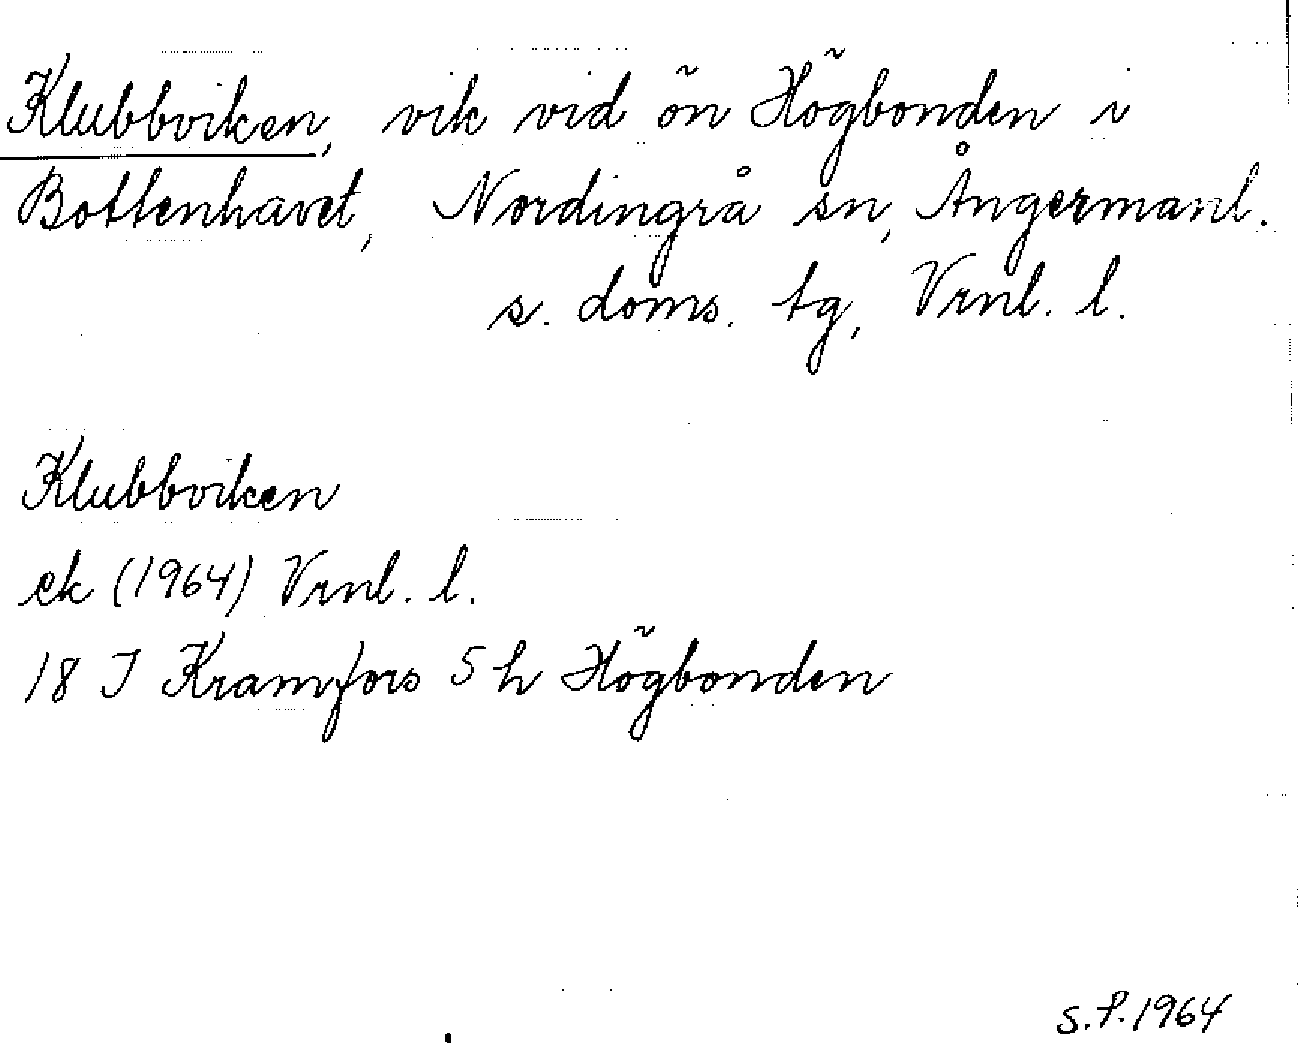 Klubbviken, vik vid ön Högbonden i
Bottenhavet, Nordingrå sn, Ångermanl.
s. doms. tg, Vrnl. l.
Klubbviken
ek (1964) Vrnl. l.
18 J Kramfors 5 h Högbonden
S.P.1964